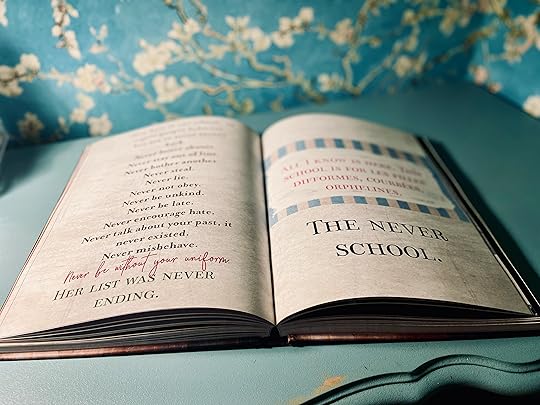 Never leave alone.
Never stay out of line.
Never bother another.
Never steal.
Never lie.
Never not obey.
Never be unkind.
Never be late.
Never encourage hate.
Never talk about your past, it
never existed.
Never misbehave.
Never be without your uniform
HER LIST WAS NEVER
ENDING.
ALL I KNOW IS HERE. THIS
SCHOOL IS FOR LES PETITES
DIFFORMES, COURBÉES,
ORPHELINES.
THE NEVER
SCHOOL.